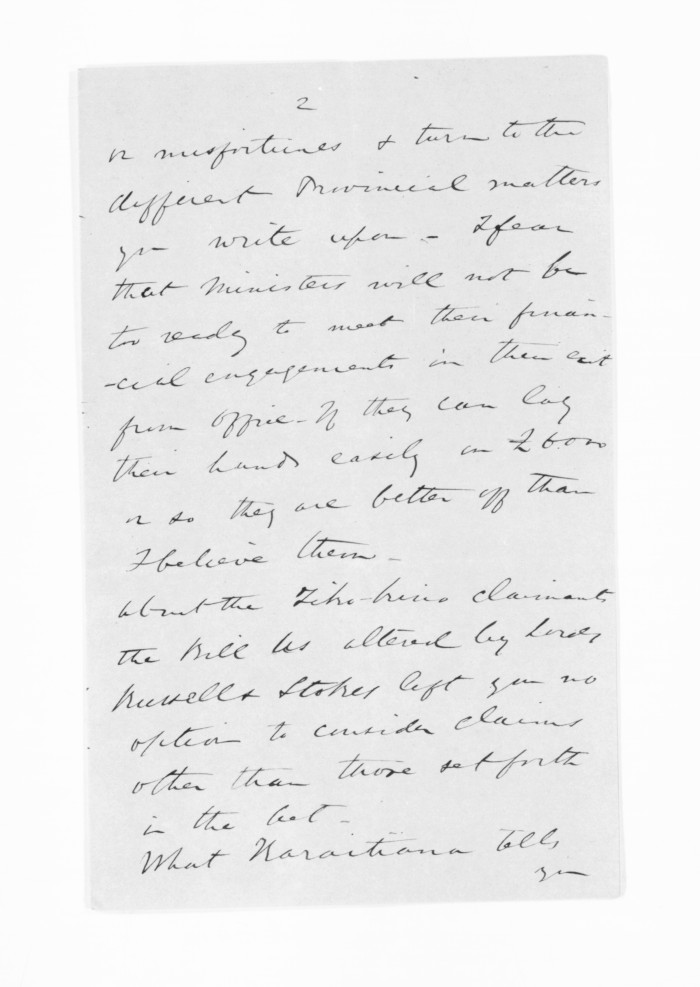 2
or misfortunes & turn to the
different Provincial matters
you write upon - I fear
that Ministers will not be
too ready to meet their finan-
-cial engagements in their exit
from office - If they can lay
their hands easily on £6000
or so they are better off than
I believe them -
about the claimants
the Bill as altered by Lords
Russell & Stokes left you no
option to consider claims
other than those set forth
in the Act -
What Karaitiana tells
you